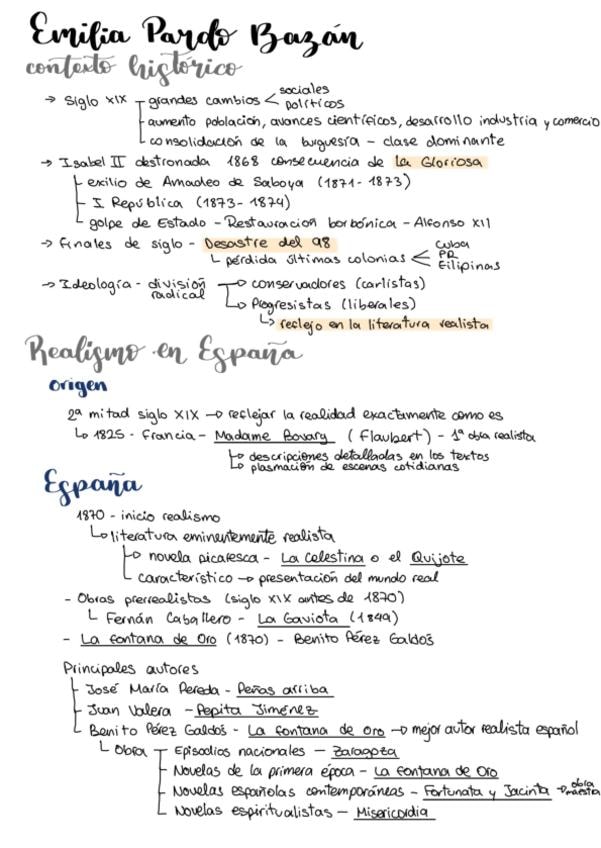 Emilia Pardo Bazán
contexto histórico
→ Siglo XIX grandes cambios < sociales
políticos
aumento población, avances científicos, desarrollo industria y comercio
consolidación de la burguesía - clase dominante
→ Isabel II destronada 1868 consecuencia de La Gloriosa
exilio de Amadeo de Saboya (1871-1873)
I República (1873-1874)
golpe de Estado - Restauración borbónica - Alfonso XII
→ Finales de siglo - Desastre del 98
pérdida últimas colonias < Cuba
PR
Filipinas
→ Ideología - división radical → conservadores (carlistas)
→ Progresistas (liberales)
↳ reflejo en la literatura realista
Realismo en España
origen
2ª mitad siglo XIX → reflejar la realidad exactamente como es
↳ 1825 - Francia - Madame Bovary (Flaubert) - 1ª obra realista
→ descripciones detalladas en los textos
→ plasmación de escenas cotidianas
España
1870 - inicio realismo
↳ literatura eminentemente realista
→ novela picaresca - La Celestina o el Quijote
característico → presentación del mundo real
- Obras prerrealistas (siglo XIX antes de 1870)
Fernán Caballero - La Gaviota (1849)
- La fontana de Oro (1870) - Benito Pérez Galdós
Principales autores
José María Pereda - Peñas arriba
Juan Valera - Pepita Jiménez
Benito Pérez Galdós - La fontana de oro → mejor autor realista español
Obra Episodios nacionales - Zaragoza
Novelas de la primera época - La fontana de Oro
Novelas españolas contemporáneas - Fortunata y Jacinta → obra maestra
Novelas espiritualistas - Misericordia